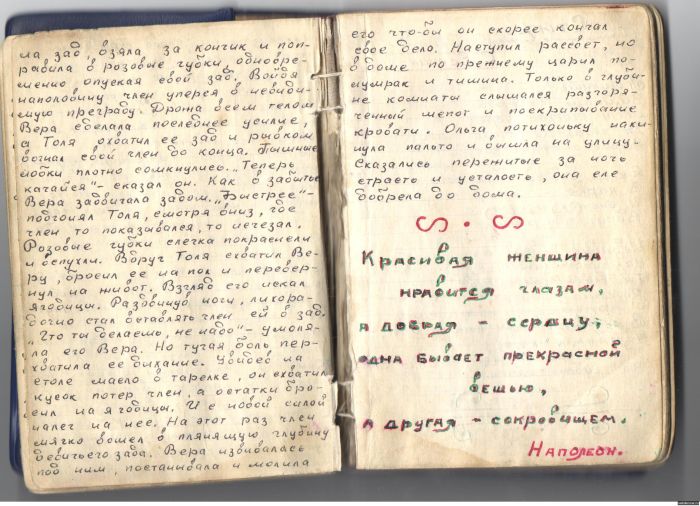 на зад взяла за кончик и поп-
равила в розовые губки, одновре-
менно опуская свой зад. Войдя
наполовину член уперся в невиди-
мую преграду. Дрожа всем телом
Вера сделала последнее усилие,
а Толя охватил ее зад и рывком
вогнал свой член до конца. Пышные
плотно сомкнулись. „Теперь
качайся" - сказал он. Как в забытье
Вера задвигала задом. „Быстрее" -
подгонял Толя, смотря вниз, где
член то показывался, то исчезал.
Розовые губки слегка покраснели
и вспухли. Вдруг Толя схватил Ве-
ру, бросил ее на пол и перевер-
нул на живот. Взгляд его искал
ягодицы. Раздвинув ноги, лихора-
дочно стал вставлять член ей в зад.
„Что ты делаешь, не надо" - умоля-
ла его Вера. Но тучая боль пер-
хватила ее дыхание. Увидев на
столе масло в тарелке, он схватил
кусок потер член, а остатки бро-
сил на ягодицы. И с новой силой
налег на нее. На этот раз член
мягко вошел в глубину
девичьего зада. Вера извивалась
под ним, постанывала и молила
его что-бы он скорее кончал
свое дело. Наступил рассвет, но
в доме по прежнему царил по-
лумрак и тишина. Только в глуби-
не комнаты слышался разгоря-
ченный шепот и поскрипывание
кровати. Ольга потихоньку наки-
нула пальто и вышла на улицу.
Сказались пережитые за ночь
страсть и усталость, она еле
добрела до дома.
Красивая женщина
нравится глазам,
а добрая - сердцу;
одна бывает прекрасной
вещью,
а другая - сокровищем.
Наполеон.